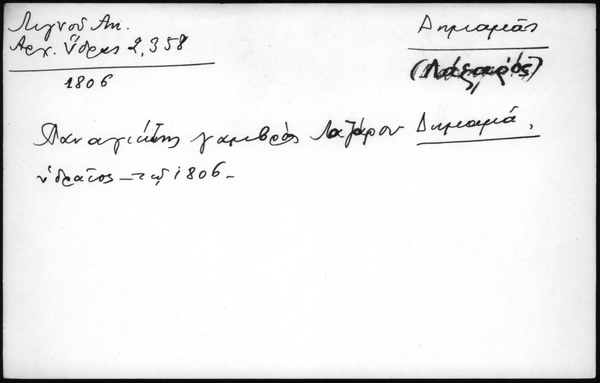 Λιγνοῦ Ἀν.
Ἀρχ. Ὕδρας 2,358
1806
Δημαμᾶς
(Λάζαρος)
Παναγιώτης γαμβρὸς Λαζάρου Δημαμᾶ,
ὑδραῖος – τῷ 1806 –